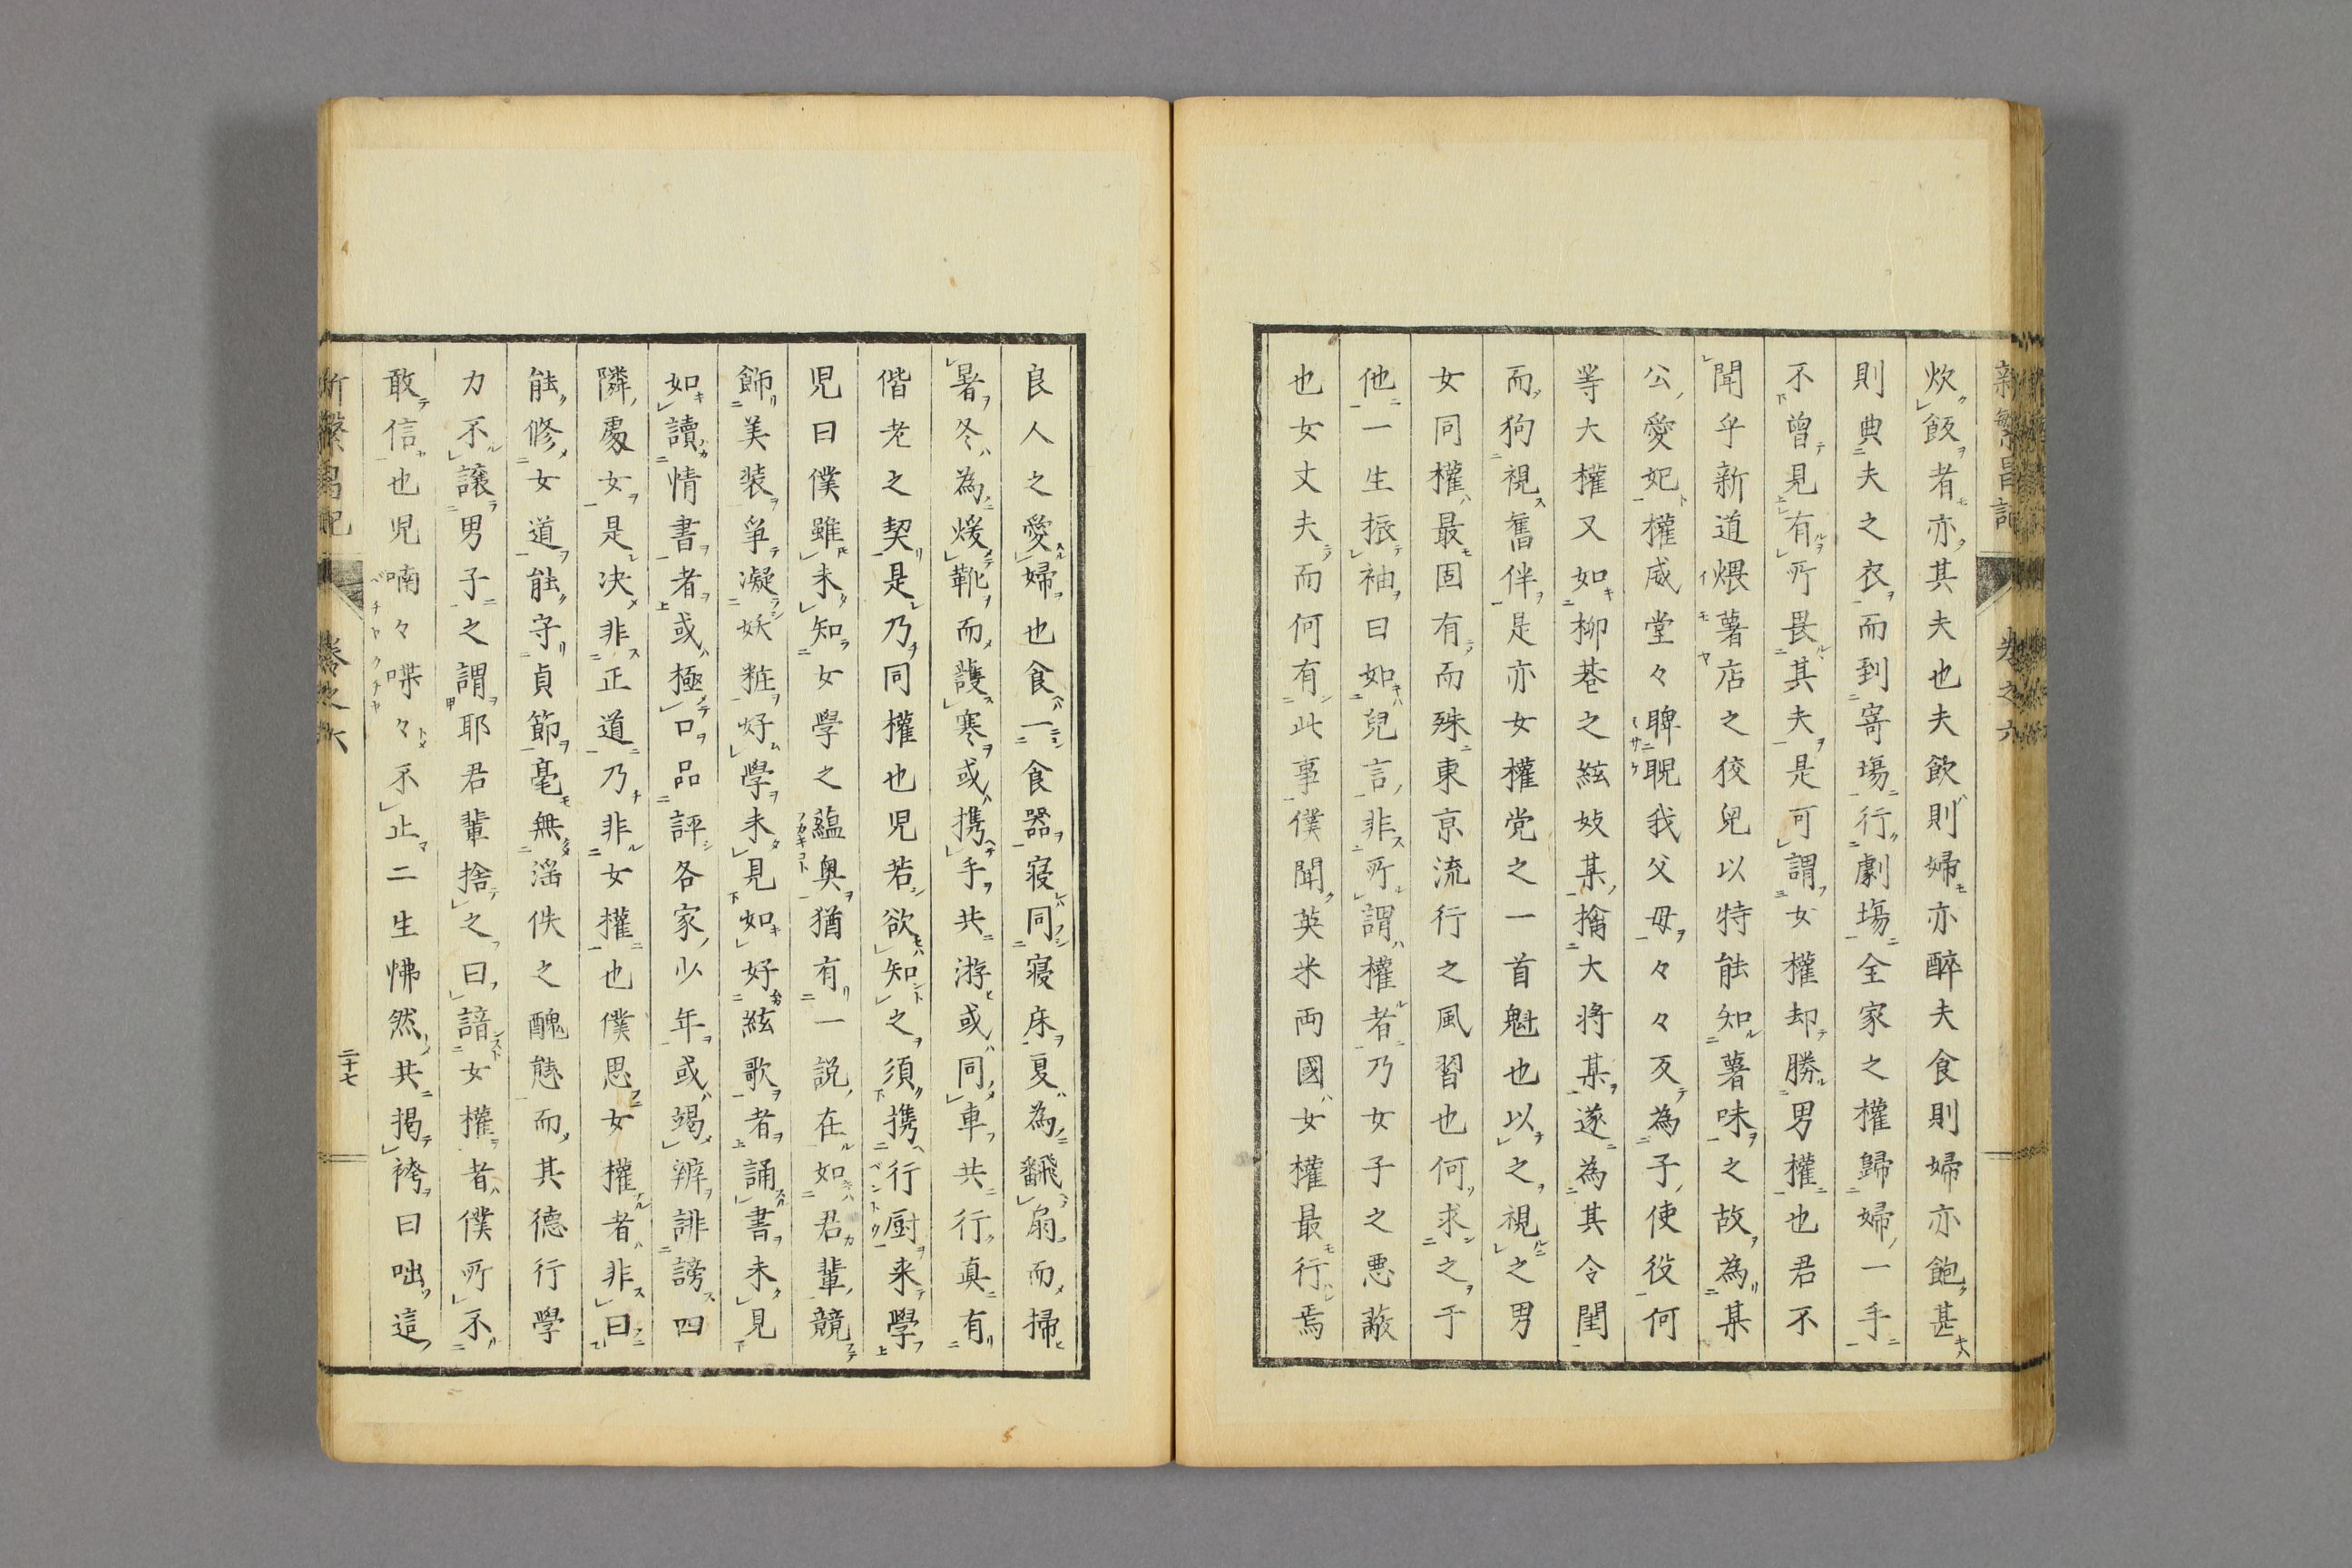 新繁昌記
卷之六
炊飯者亦其夫也夫飲則婦亦醉夫食則婦亦飽甚
則典夫之衣而到寄塲行劇塲全家之權歸婦一手
不曾見有所畏其夫是可謂女權却勝男權也君不
聞乎新道煨薯店之佼兒以特能知薯味之故為某
公愛妃權威堂々睥睨我父母々々反為子使役何
等大權又如柳巷之絃妓某擒大將某遂為其令閨
而狗視舊伴是亦女權党之一首魁也以之視之男
女同權最固有而殊東京流行之風習也何求之于
他一生振袖曰如兒言非所謂權者乃女子之悪蔽
也女丈夫而何有此事僕聞英米両國女權最行焉
良人之愛婦也食一食器寝同寝床夏為飜扇而掃
暑冬為煖靴而護寒或携手共游或同車共行眞有
偕老之契是乃同權也児若欲知之須携行厨来學
児曰僕雖未知女學之蘊奥猶有一説在如君輩競
飾美装爭凝妖粧好學未見如好絃歌者誦書未見
如讀情書者或極口品評各家少年或竭辨誹謗四
隣處女是决非正道乃非女權也僕思女權者非曰
能修女道能守貞節毫無滛佚之醜態而其德行學
力不譲男子之謂耶君輩捨之曰諳女權者僕所不
敢信也児喃々喋々不止二生怫然共掲袴曰咄這
新繁昌記
卷之六
二十七